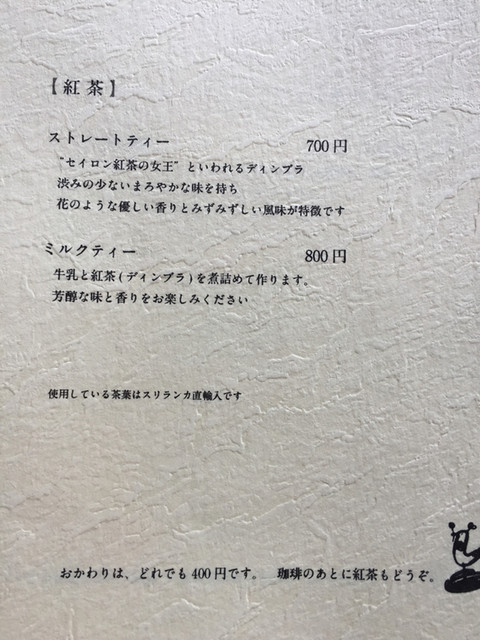 【紅茶】
ストレートティー 700円
“セイロン紅茶の女王” といわれるディンブラ
渋みの少ないまろやかな味を持ち
花のような優しい香りとみずみずしい風味が特徴です
ミルクティー 800円
牛乳と紅茶(ディンブラ)を煮詰めて作ります。
芳醇な味と香りをお楽しみください
使用している茶葉はスリランカ直輸入です
おかわりは、どれでも400円です。 珈琲のあとに紅茶もどうぞ。